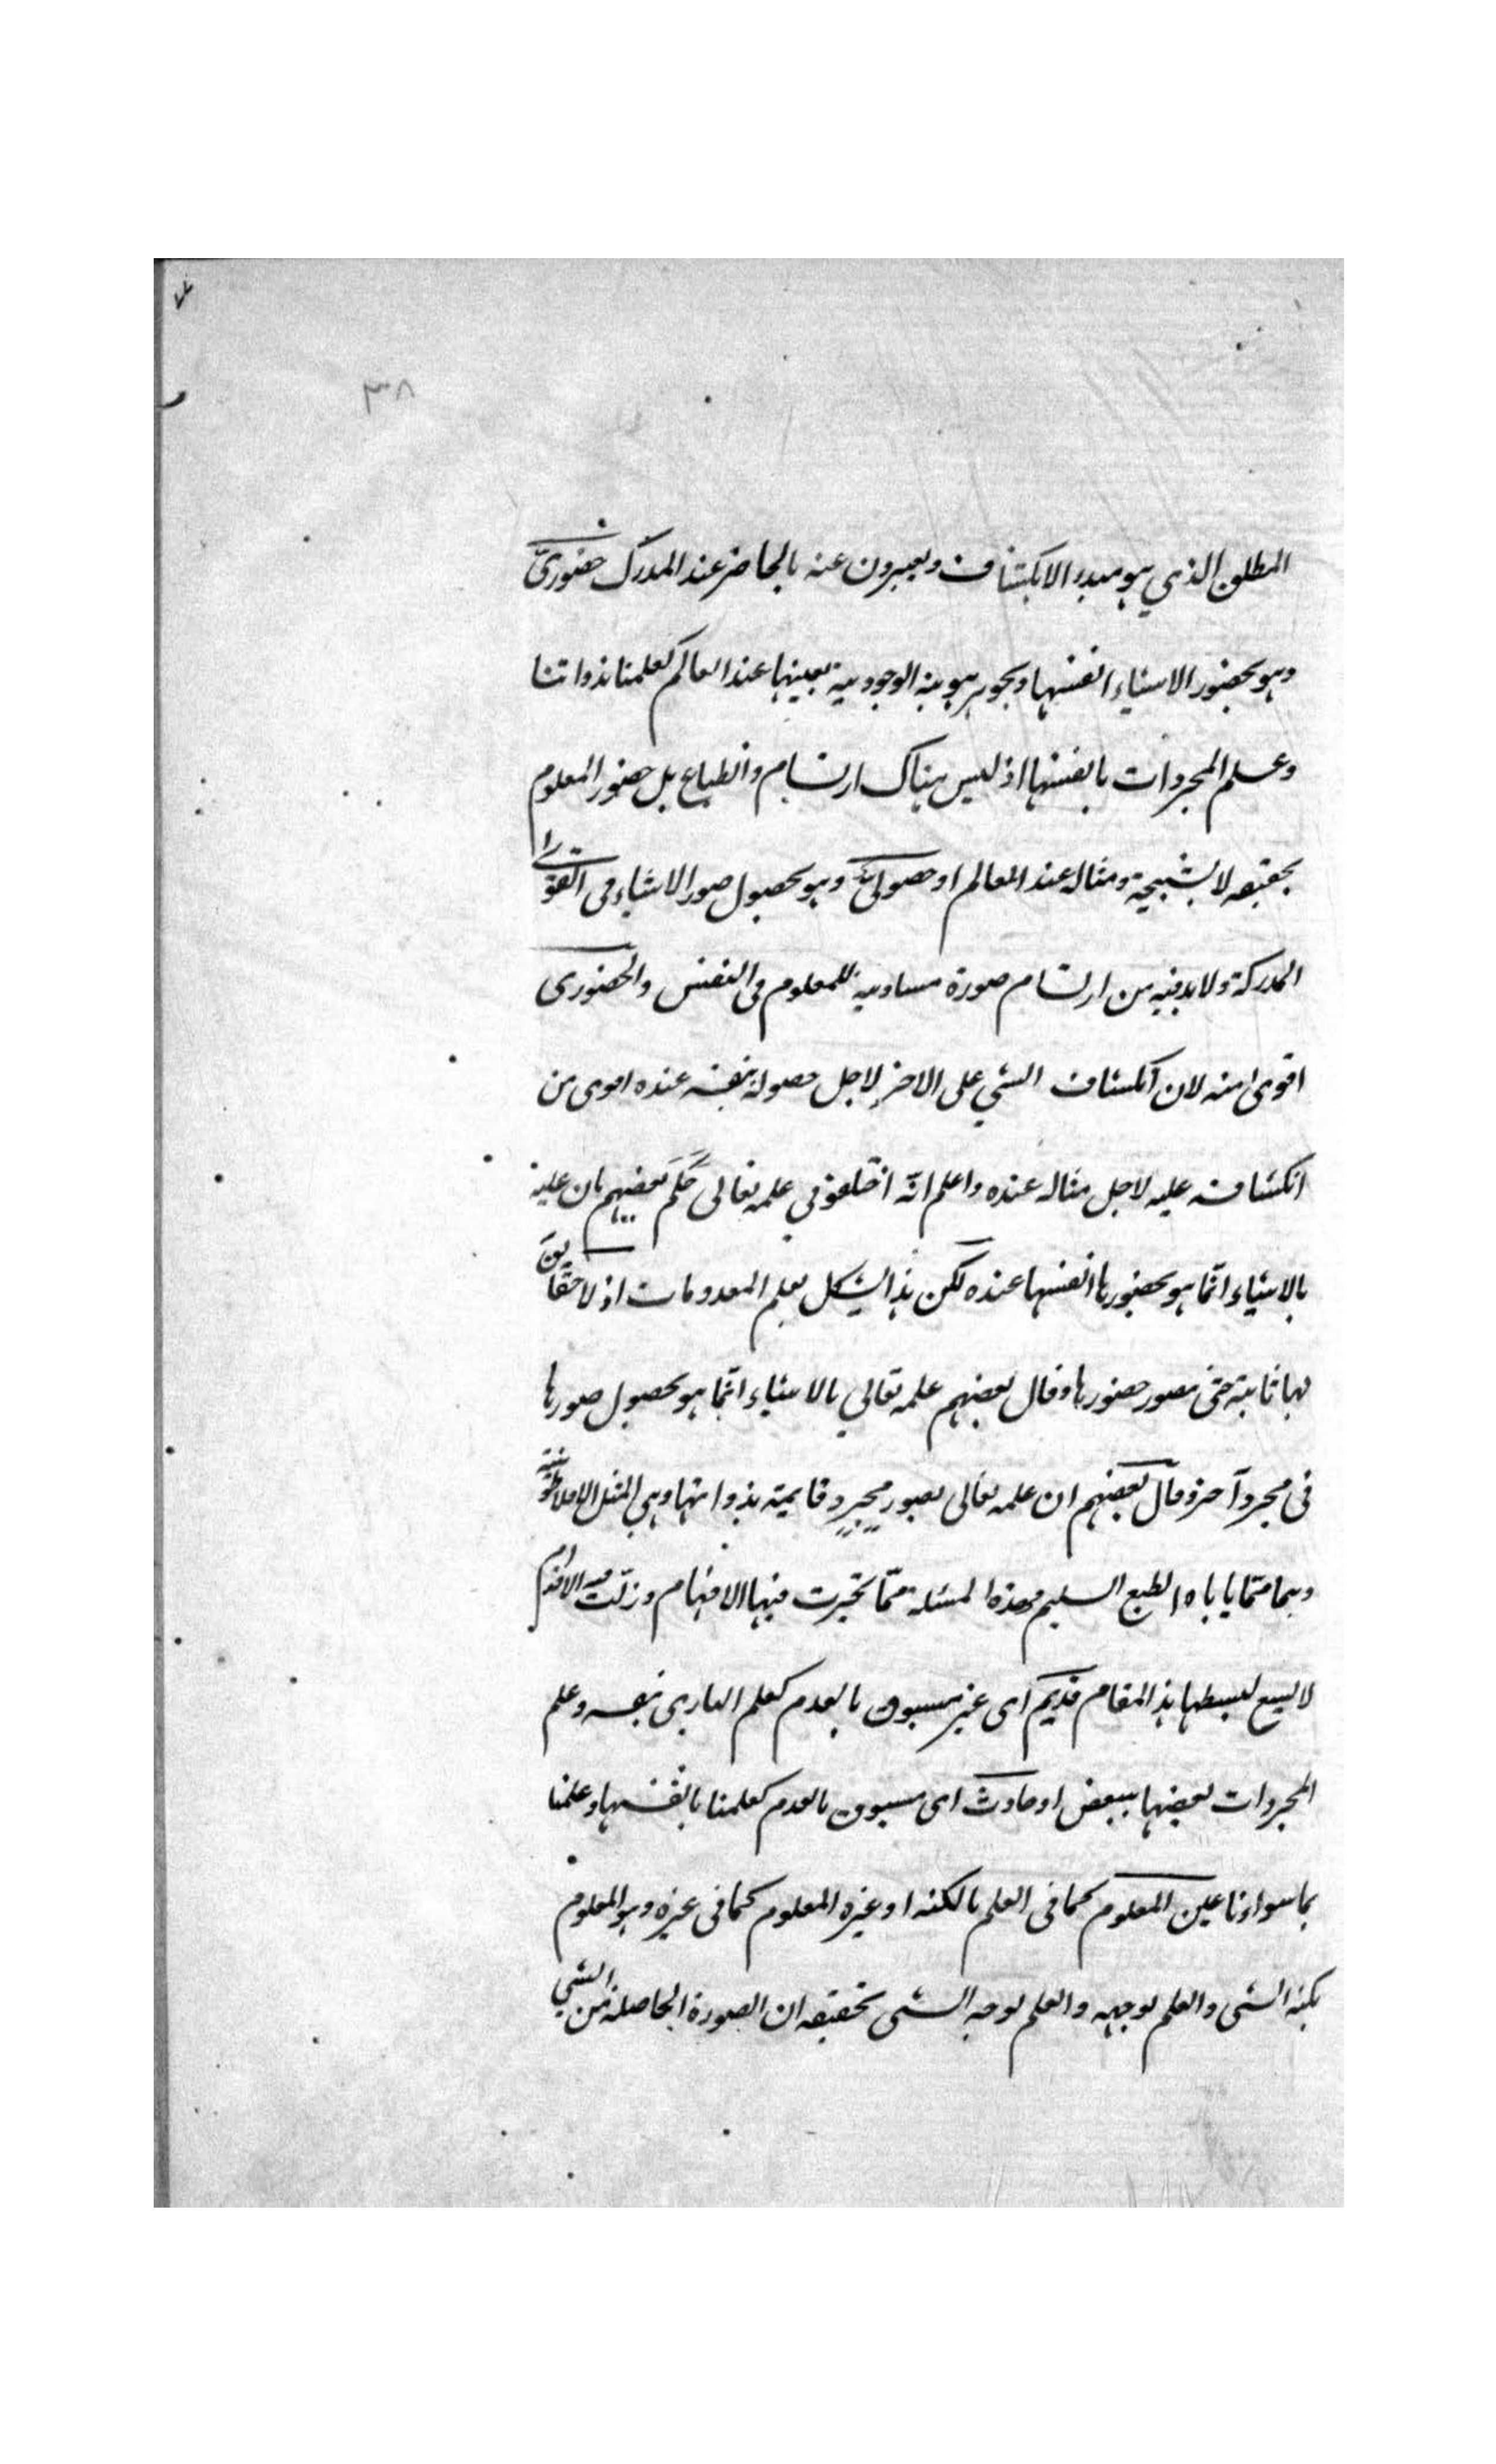 ٣٨
المطلق الذي هو مبدء الانكشاف ويعبرون عنه بالحاضر عند المدرك حضوريّ
وهو بحضور الاشياء انفسها وبجوهر هويته الوجودية بعينها عند العالم كعلمنا بذواتنا
وعلم المجردات بانفسها اذ ليس هناك ارتسام وانطباع بل حضور المعلوم
بحقيقه لا بشبحية ومثاله عند العالم او حصوليّ وهو بحصول صور الاشياء فى القوى
المدركة ولا بد فيه من ارتسام صورة مساوية للمعلوم فى النفس والحضورى
اقوى منه لان انكشاف الشي على الاخر لاجل حصوله بنفسه عنده اقوى من
انكشافه عليه لاجل مثاله عنده واعلم انّه اختلفو في علمه تعالى حكم بعضهم بان علمه
بالاشياء انّما هو بحضورها انفسها عنده لكن هذا يشكل بعلم المعدومات اذ لا حقايق
لها ثابتة حتى تصور حضورها وقال بعضهم علمه تعالي بالاشياء انّما هو بحصول صورها
فى مجرد آخر وقال بعضهم ان علمه تعالى بصور مجرد قايمة بذواتها وهي المثل الافلاطونية
وهما ممّا ياباه الطبع السليم وهذه المسئلة ممّا تحيرت فيها الافهام وزلّت فيه الاقدام
لا يسع لبسطها هذا المقام قديم اى غير مسبوق بالعدم كعلم البارى بنفسه وعلم
المجردات بعضها ببعض او حادث اى مسبوق بالعدم كعلمنا بانفسها وعلمنا
بما سواءنا عين المعلوم كما فى العلم بالكنه او غيره المعلوم كما فى غيره وهو المعلوم
بكنه الشى والعلم بوجهه والعلم بوجه الشى تحقيقه ان الصورة الحاصلة من الشي